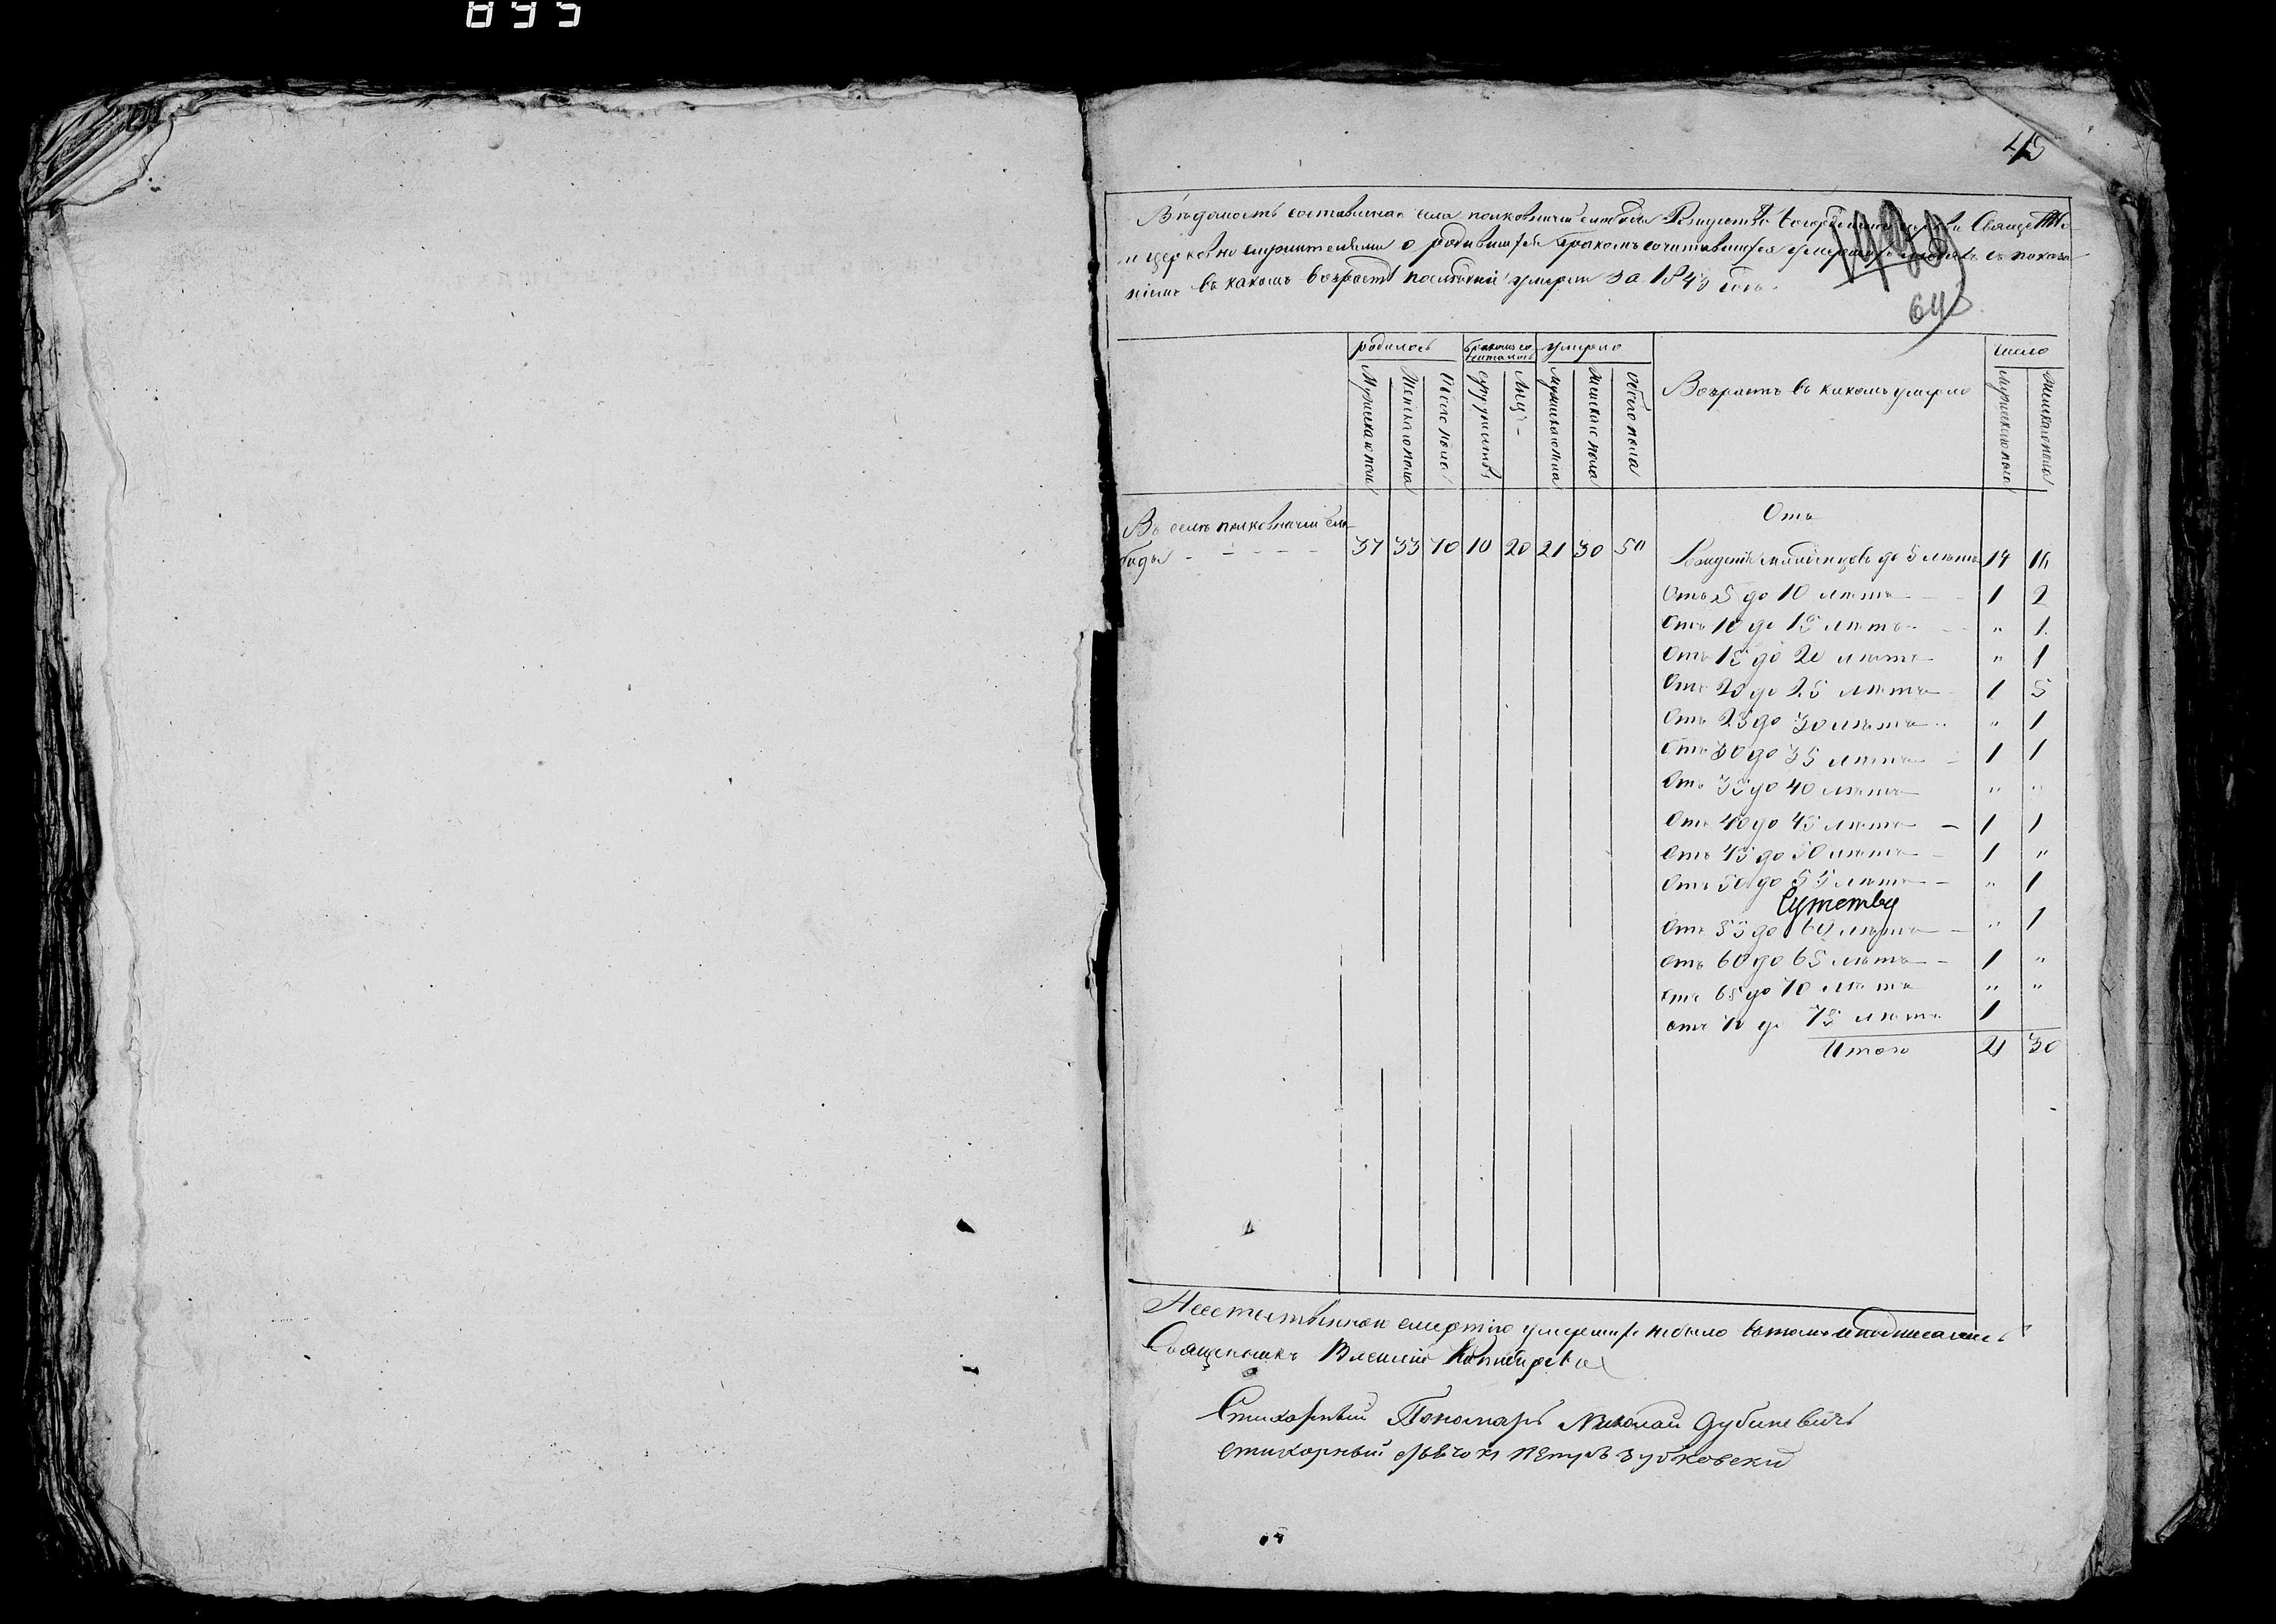 895
45
Вѣдомость составленная села полковничьей слободы Рождество Богородичной церкви Священно
и церковно служителями о родившихся бракомъ сочитавшихся умершихъ людяхъ съ показа
ніемъ въ какомъ возрастѣ послѣдніи умерли за 1843 годъ.
64
родилось бракомъ сочиталось умерло Возрастъ въ какомъ умерло число
Мужеска пола Женскаго пола Обоего пола супружествъ Лицъ Мужескаго пола Женскаго пола Обоего пола Мужескаго пола Женскаго пола
Отъ
Въ селѣ полковничьи сло
боды - - - - - 37 33 70 10 20 21 30 Рождені младенцовъ до 5 лѣтъ 14 16
Отъ 5 до 10 лѣтъ 1 2
Отъ 10 до 15 лѣтъ " 1
Отъ 15 до 20 лѣтъ " 1
Отъ 20 до 25 лѣтъ 1 5
Отъ 25 до 30 лѣтъ " 1
Отъ 30 до 35 лѣтъ 1 1
Отъ 35 до 40 лѣтъ " "
Отъ 40 до 45 лѣтъ - 1 1
Отъ 45 до 50 лѣтъ 1 "
Отъ 50 до 55 лѣтъ - " 1
Отъ 55 до 60 лѣтъ - " 1
отъ 60 до 65 лѣтъ - 1 "
отъ 65 до 70 лѣтъ " "
отъ 70 до 75 лѣтъ 1
Итого 21 30
смертію умершихъ небыло вътомъ и подписались
Священникъ Василій
Стихарный Пономарь Николай Дубиневичь
стихарный дьячокъ Петръ Зубковскій